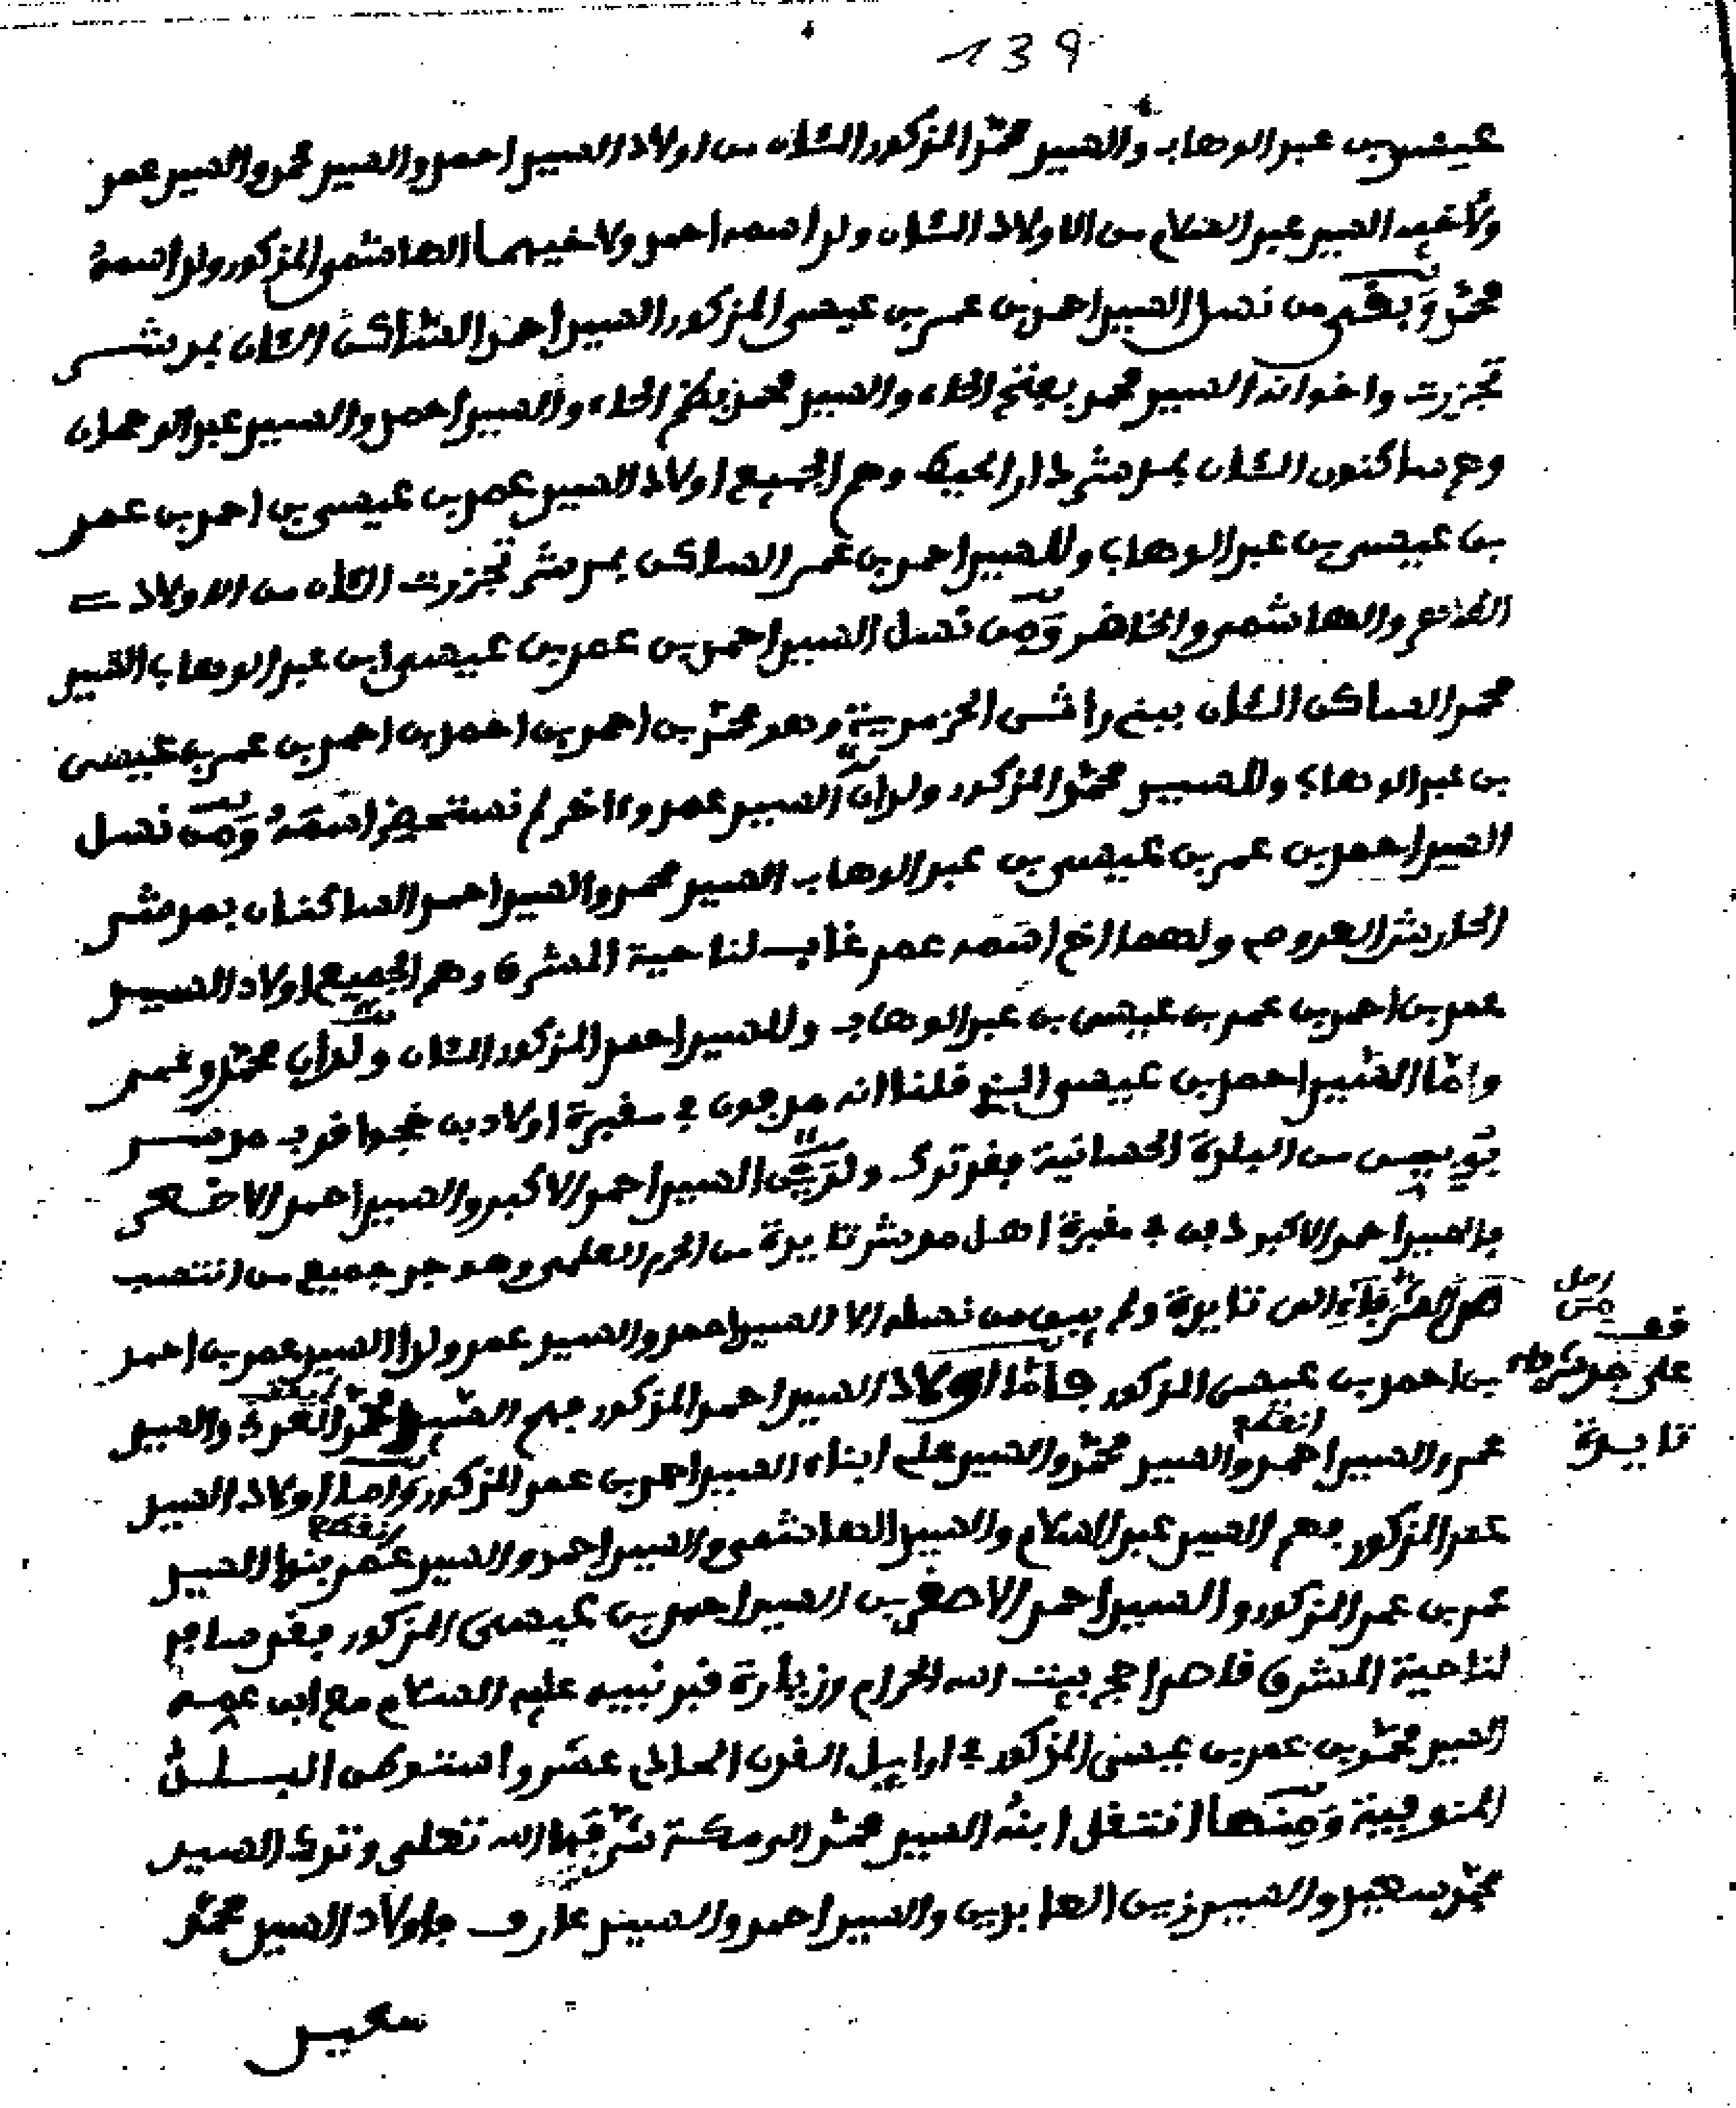 139
عيسى بن عبد الوهاب وللسيد محمد المذكور الثلاث من اولاد السيد احمد والسيد محمد والسيد عمر
ولاخيه السيد عبد السلام من الاولاد الثلاث ولد اسمه احمد ولاخيهما الهاشمي المذكور ولد اسمه
محمد وبقي من نسل السيد احمد بن عمر بن عيسى المذكور السيد احمد الساكن الثلاث بمدشر
تجزرت واخوانه السيد محمد بفتح الحاء والسيد محمد بضم الحاء والسيد احمد والسيد عبد الرحمان
وهم ساكنون الثلاث بمدشر دار الحيط وهم الجميع اولاد السيد عمر بن عيسى بن احمد بن عمر
بن عيسى بن عبد الوهاب وللسيد احمد بن عمر الساكن بمدشر تجزرت الثلاث من الاولاد
والهاشمي والخاضر ومن نسل السيد احمد بن عمر بن عيسى ابن عبد الوهاب السيد
محمد الساكن الثلاث ببني راشي الحزمرية وهو محمد بن احمد بن احمد بن احمد بن عمر بن عيسى
بن عبد الوهاب وللسيد محمد المذكور ولدان السيد عمر والاخر لم نستحضر اسمه ومن نسل
السيد احمد بن عمر بن عيسى بن عبد الوهاب السيد محمد والسيد احمد الساكنان بمدشر
ولهما اخ اسمه عمر غاب لناحية المشرق وهم الجميع اولاد السيد
عمر بن احمد بن عمر بن عيسى بن عبد الوهاب وللسيد احمد المذكور الثلاث ولدان محمد وعمر
واما السيد احمد بن عيسى الذي قلنا انه مدفون في مقبرة اولاد بن قرب مدشر
من البلدة الحسانية فقد ترك ولدين السيد احمد الاكبر والسيد احمد الاصغر
فالسيد احمد الاكبر دفن في مقبرة اهل مدشر تايدة من الحرم العلمي وهو جد جميع من انتسب
من الشرفاء الى تايدة ولم يبق من نسله الا السيد احمد والسيد عمر ولدا السيد عمر بن احمد
بن احمد بن عيسى المذكور فاما اولاد السيد احمد المذكور فهم السيد محمد والسيد
عمر والسيد احمد والسيد محمد والسيد علي ابناء السيد احمد بن عمر المذكور واما اولاد السيد
عمر المذكور فهم السيد عبد السلام والسيد الهاشمي والسيد احمد والسيد عمر بنوا السيد
عمر بن عمر المذكور والسيد احمد الاصغر بن السيد احمد بن عيسى المذكور فقد سافر
لناحية المشرق قاصدا حج بيت الله الحرام وزيارة قبر نبيه عليه السلام مع ابن عمه
السيد محمد بن عمر بن عيسى المذكور في اوايل القرن الحادي عشر واستوطن البلدة
المنوفية ومنها انتقل ابنه السيد محمد الى مكة شرفها الله تعلى وترك السيد
محمد سعيد والسيد زين العابدين والسيد احمد والسيد عارف فاولاد السيد محمد
سعيد
انقطع
انقطع
قف
على جد من
تايدة